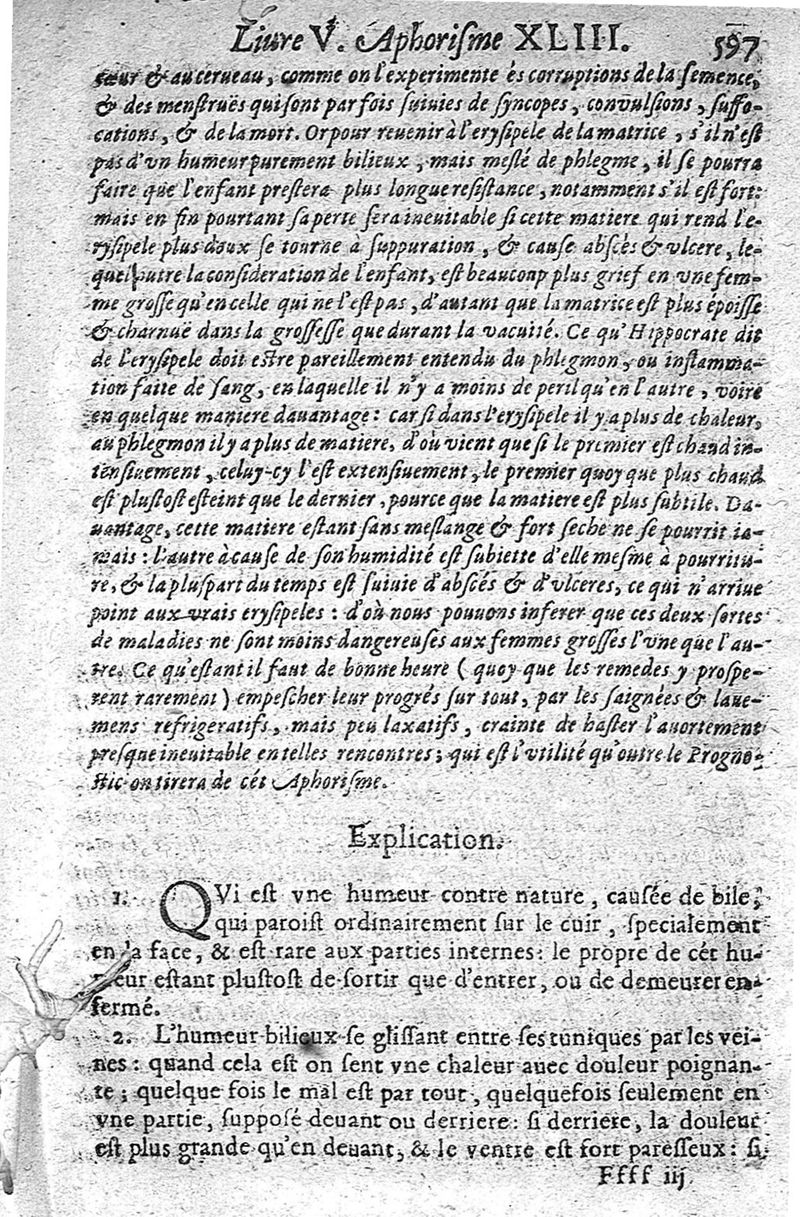 Liure V. Aphoriſme XLIII. 597
cœur & au cerueau, comme on l'experimente és corruptions de la ſemence,
& des menſtruës qui ſont par fois ſuiuies de ſyncopes, conuulſions, ſuffo-
cations, & de la mort. Or pour reuenir à l'eryſipele de la matrice, s'il n'eſt
pas d'vn humeur purement bilieux, mais meſlé de phlegme, il ſe pourra
faire que l'enfant preſtera plus longue reſiſtance, notamment s'il eſt fort:
mais en fin pourtant ſa perte ſera ineuitable ſi cette matiere qui rend l'e-
ryſipele plus doux ſe tourne à ſuppuration, & cauſe abſcès & vlcere, le-
quel outre la conſideration de l'enfant, eſt beaucoup plus grief en vne fem-
me groſſe qu'en celle qui ne l'eſt pas, d'autant que la matrice eſt plus époiſſe
& charnuë dans la groſſeſſe que durant la vacuité. Ce qu'Hippocrate dit
de l'eryſipele doit eſtre pareillement entendu du phlegmon, ou inflamma-
tion faite de ſang, en laquelle il n'y a moins de peril qu'en l'autre, voire
en quelque maniere dauantage: car ſi dans l'eryſipele il y a plus de chaleur,
au phlegmon il y a plus de matiere, d'où vient que ſi le premier eſt chaud in-
tenſiuement, celuy-cy l'eſt extenſiuement, le premier quoy que plus chaud
eſt pluſtoſt eſteint que le dernier, pource que la matiere eſt plus ſubtile. Da-
uantage, cette matiere eſtant ſans meſlange & fort ſeche ne ſe pourrit ia-
mais: l'autre à cauſe de ſon humidité eſt ſubiette d'elle meſme à pourritu-
re, & la pluſpart du temps eſt ſuiuie d'abſcés & d'vlceres, ce qui n'arriue
point aux vrais eryſipeles: d'où nous pouuons inferer que ces deux ſortes
de maladies ne ſont moins dangereuſes aux femmes groſſes l'vne que l'au-
tre. Ce qu'eſtant il faut de bonne heure (quoy que les remedes y proſpe-
rent rarement) empeſcher leur progrés ſur tout, par les ſaignées & laue-
mens refrigeratifs, mais peu laxatifs, crainte de haſter l'auortement
preſque ineuitable en telles rencontres; qui eſt l'vtilité qu'outre le Progno-
ſtic on tirera de cét Aphoriſme.
Explication.
1. QVi eſt vne humeur contre nature, cauſée de bile,
qui paroiſt ordinairement ſur le cuir, ſpecialement
en la face, & eſt rare aux parties internes: le propre de cét hu-
meur eſtant pluſtoſt de ſortir que d'entrer, ou de demeurer en-
fermé.
2. L'humeur bilieux ſe gliſſant entre ſes tuniques par les vei-
nes: quand cela eſt on ſent vne chaleur auec douleur poignan-
te; quelque fois le mal eſt par tout, quelquefois ſeulement en
vne partie, ſuppoſé deuant ou derriere: ſi derriere, la douleur
eſt plus grande qu'en deuant, & le ventre eſt fort pareſſeux: ſi
Ffff iij